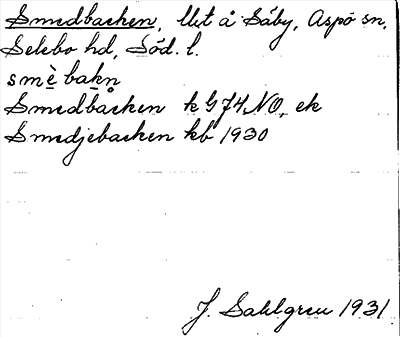 Smedbacken, lht å Säby, Aspö sn,
Selebo hd, Söd. l.
smè bakn̥
Smedbacken k G 74 NO, ek
Smedjebacken kb 1930
J. Sahlgren 1931